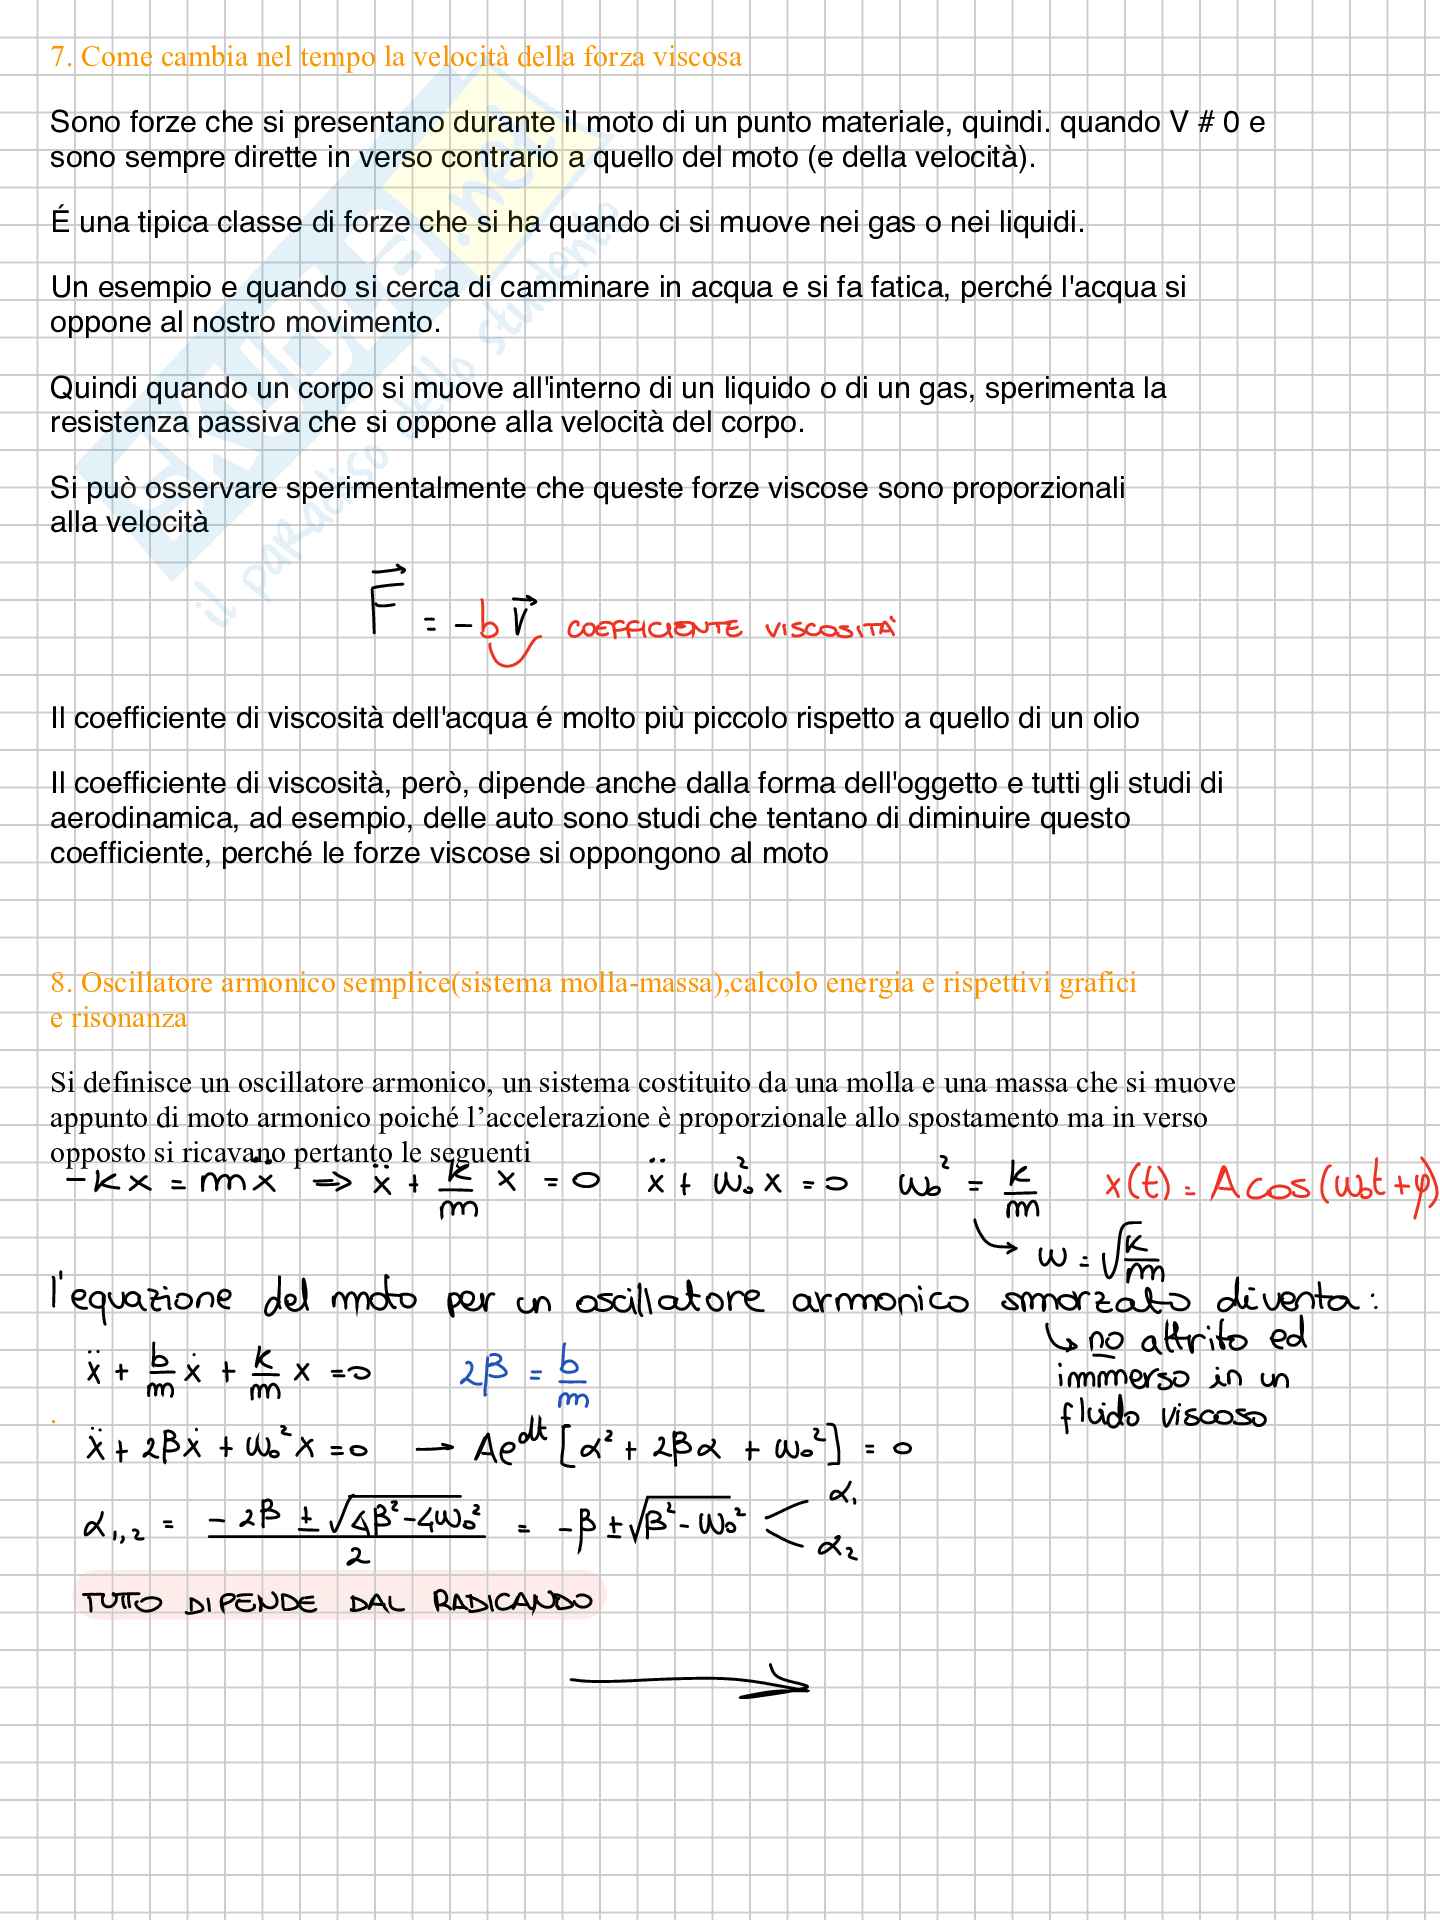 7. Come cambia nel tempo la velocità della forza viscosa
Sono forze che si presentano durante il moto di un punto materiale, quindi. quando V # 0 e
sono sempre dirette in verso contrario a quello del moto (e della velocità).
É una tipica classe di forze che si ha quando ci si muove nei gas o nei liquidi.
Un esempio e quando si cerca di camminare in acqua e si fa fatica, perché l'acqua si
oppone al nostro movimento.
Quindi quando un corpo si muove all'interno di un liquido o di un gas, sperimenta la
resistenza passiva che si oppone alla velocità del corpo.
Si può osservare sperimentalmente che queste forze viscose sono proporzionali
alla velocità
F⃗ = -b v⃗ COEFFICIENTE VISCOSITA'
Il coefficiente di viscosità dell'acqua é molto più piccolo rispetto a quello di un olio
Il coefficiente di viscosità, però, dipende anche dalla forma dell'oggetto e tutti gli studi di
aerodinamica, ad esempio, delle auto sono studi che tentano di diminuire questo
coefficiente, perché le forze viscose si oppongono al moto
8. Oscillatore armonico semplice(sistema molla-massa),calcolo energia e rispettivi grafici
e risonanza
Si definisce un oscillatore armonico, un sistema costituito da una molla e una massa che si muove
appunto di moto armonico poiché l’accelerazione è proporzionale allo spostamento ma in verso
opposto si ricavano pertanto le seguenti
-kx = mẍ ⇒ ẍ + k/m x = 0 ẍ + ω₀² x = 0 ω₀² = k/m x(t) = A cos(ω₀t + φ)
→ ω = √k/m
l'equazione del moto per un oscillatore armonico smorzato diventa:
↳ no attrito ed
immerso in un
fluido viscoso
ẍ + b/m ẋ + k/m x = 0 2β = b/m
ẍ + 2βẋ + ω₀² x = 0 → Ae^αt [α² + 2βα + ω₀²] = 0
α₁,₂ = -2β ± √4β² - 4ω₀² / 2 = -β ± √β² - ω₀² < α₁ α₂
TUTTO DIPENDE DAL RADICANDO
SKUOLA.net
il paradiso dello studente